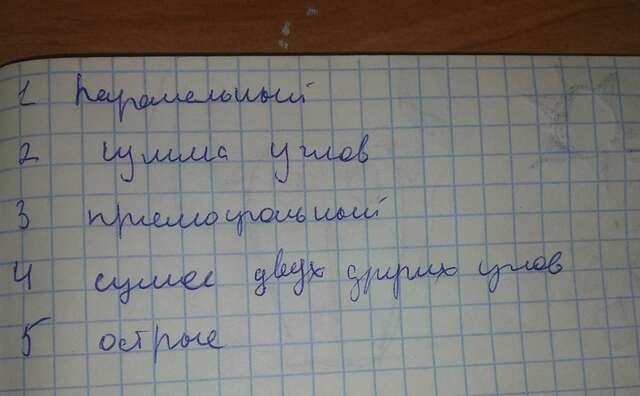 1 паромельный
2 сумма углов
3 прямоугольный
4 сумме двух других углов
5 острые